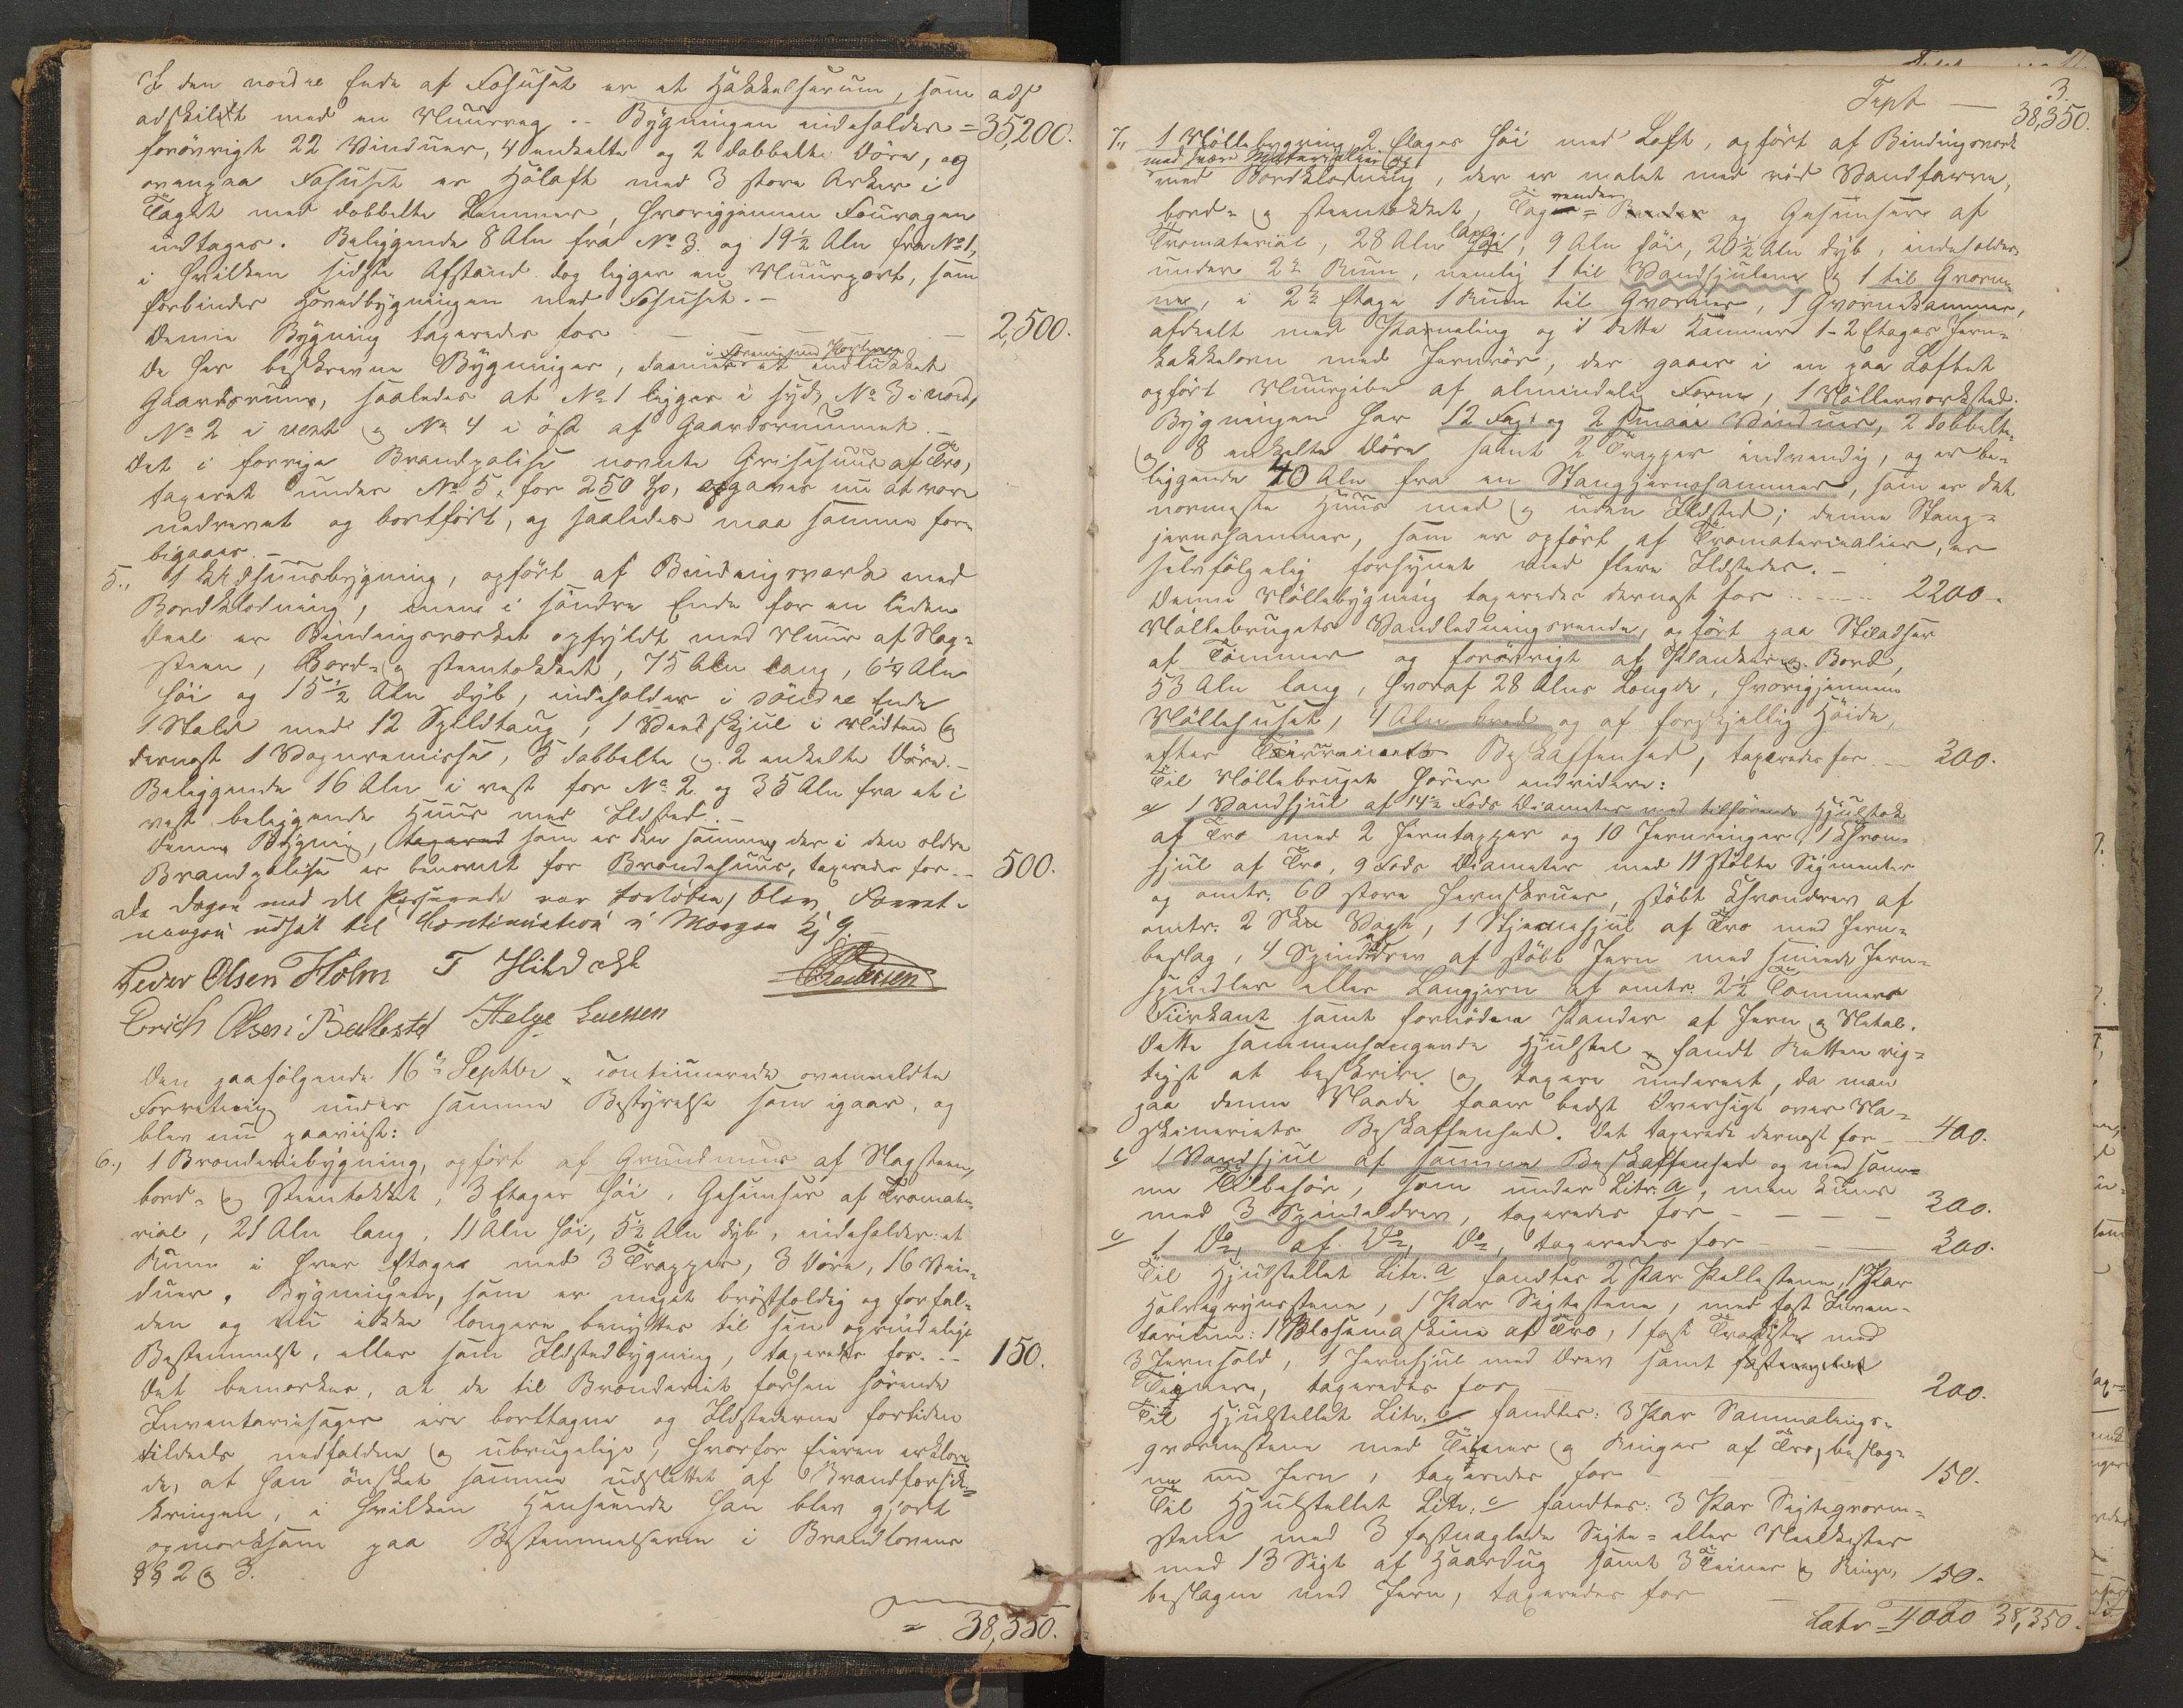 I den nordre Ende af Fæhuset er et Hakkelserum, som
adskilt med en Muurvæg. – Bygningen indeholder = 35,200.
forövrigt 22 Vinduer, 4 enkelte og 2 dobbelte Döre, og
ovenpaa Fæhuset er Höloft med 3 store Arker i
Taget med dobbelte Lemmer, hvorigjennem Fouragen
indtages. Beliggende 8 Alen fra No 3. og 19½ Alen fra No 1,
i hvilken sidste Afstand dog ligger en Muurport, som
forbinder Hovedbygningen med Fæhuset. –
Denne Bygning taxeredes for — — — 2,500.
i Forening med Portene
De her beskrevne Bygninger, danner et indlukket
Gaardsrum, saaledes at No 1 ligger i syd, No 3 i nord,
No 2 i vest og No 4 i öst af Gaardsrummet. –
Det i forrige Brandpolise nævnte Grisehuus af Træ,
taxeret under No 5, for 250 Sp, opgaves nu at være
nedrevet og bortfört, og saaledes maa samme for-
bigaaes. –
5., 1 Udhuusbygning, opfört af Bindingsværk med
Bordklædning, men i söndre Ende for en liden
Deel er Bindingsværket opfyldt med Muur af Slag-
steen, Bord- og steentækket, 75 Alen lang, 6¼ Alen
höi og 15½ Alen dyb, indeholder i söndre Ende
1 Stald med 12 Spildtoug, 1 Vedskjul i Midten og
dernæst 1 Vognremisse, 3 dobbelte og 2 enkelte Döre. –
Beliggende 16 Alen i vest for No 2 og 35 Alen fra et i
vest beliggende Huus med Ildsted. –
Denne Bygning, taxered som er den samme, der i den ældre
Brandpolise er benævnt for Brændehuus, taxeredes for. – 500.
Da Dagen med det Passerede var forlöben, blev Forret-
ningen udsat til Continuation i Morgen Kj 9. –
Peder Olsen Holm F Hilds
Pedersen
Erich Olsen Ballestd Helge
Den paafölgende 16de Septbr continuerede ovenmeldte
Forretning under samme Bestyrelse som igaar, og
blev nu paaviist:
6., 1 Brænderiebygning, opfört af Grundmuur af Slagsteen,
bord- og Steentækket, 3 Etager höi, Gesimser af Træmate-
rial, 21 Alen lang, 11 Alen höi, 5½ Alen dyb, indeholder: et
Rum i hver Etage med 3 Trapper, 3 Döre, 16 Vin-
duer. Bygningen, som er meget bröstfoldig og forfal-
den og nu ikke længere benyttes til sin oprindelige
Bestemmelse, eller som Ildstedbygning, taxeredes for. – 150.
Det bemærkes, at de til Brænderiet forhen hörende
Inventariesager ere borttagne og Ildstederne fortiden
tildeels nedfaldne og ubrugelige, hvorfor Eieren erklære
de, at han önsket samme udslettet af Brandforsik-
kringen, i hvilken Henseende han blev gjort
opmærksom paa Bestemmelserne i Brandlovens
§§ 2 og 3.
= 38,350.
3.
Tspt — 38,350.
7., 1 Möllebygning, 2 Etager höi med Loft, opfört af Bindingsværk
med svære Materialier og
med Bordklædning, der er malet med röd Vandfarve,
bord- og steentækket, Tagrender og Gesimser af
Træmaterial, 28 Alen lang, 9 Alen höi, 20½ Alen dyb, indeholder
under 2de Rum, nemlig 1 til Vandhjulene og 1 til Qværne
ne, i 2de Etage 1 Rum til Qværner, 1 Qværnekammer,
afdeelt med Panneling og i dette Kammer 1 – 2 Etages Jern-
kakkelovn med Jernrör, der gaaer i en paa Loftet
opfört Muurpibe af almindelig Form, 1 Möllerværksted.
Bygningen har 12 Fag og 2 smaae Vinduer, 2 dobbelte
og 8 enkelte Döre samt 2 Trapper indvendig, og er be-
liggende 40 Alen fra en Stangjernshammer, som er det
nærmeste Huus med og uden Ildsted; denne Stang-
jernshammer, som er opfört af Træmaterialier, er
selvfölgelig forsynet med flere Ildsteder. –
Denne Möllebygning taxeredes dernæst for ...... 2200.
Möllebrugets Vandledningsrende, opfört paa Stiladser
af Tömmer og forövrigt af Planker og Bord,
53 Alen lang, hvoraf 28 Alens Længde, hvorigjennem
Möllehuset, 4 Alen bred og af forskjellig Höide,
efter Terrainets Beskaffenhed, taxeredes for. — 300.
Til Möllebruget hörer endvidere:
a 1 Vandhjul af 14½ Fods Diameter med tilhörende Hjulstok
af Træ med 2 Jerntapper og 10 Jernringer, 1 Kron-
hjul af Træ, 9 Fods Diameter med 11 stöbte Sigmenter
og omtr. 60 store Jernskruer, stöbt Krondrev af
omtr. 2 Sk Vægt, 1 Stjernehjul af Træ med Jern-
beslag, 4 Spindeldrev af stöbt Jern med smiede Jern-
spindler eller Langjern af omtr. 2½ Tommers
Fiirkant samt fornödne Pander af Jern og Metal.
Dette sammenhængende Hjulstel fandt Retten rig-
tigst at beskrive og taxere underéet, da man
paa denne Maade faaer bedst Oversigt over Ma-
skineriets Beskaffenhed. Det taxeredes dernæst for — 400.
b 1 Vandhjul af samme Beskaffenhed og med sam-
me Tilbehör, som under Litr. a, men kuns
med 3 Spindeldrev, taxeredes for — — — 300.
c 1 Do, af Do, Do, taxeredes for — — 300.
Til Hjulstellet Litr. a fandtes 2 Par Pellestene, 1 Par
Havregrynsstene, 1 Par Sigtestene, med fast Inven-
tarium: 1 Blæsemaskine af Træ, 1 fast Trækiste med
3 Jernsold, 1 Jernhjul med Drev samt fastnaglet
Teiner, taxeredes for — 200.
Til Hjulstellet Litr. b fandtes: 3 Par Sammalings-
qværnestene med Teiner og Ringer af Træ, beslag-
ne med Jern, taxeredes for — 150.
Til Hjulstellet Litr. c fandtes: 3 Par Sigteqværn-
stene med 3 fastnaglede Sigte- eller Meelkister
med 13 Sigt af Haardug samt 3 Teiner og Ringe,
beslagne med Jern, taxeredes for — 150.
Latr = 4000 38,350.